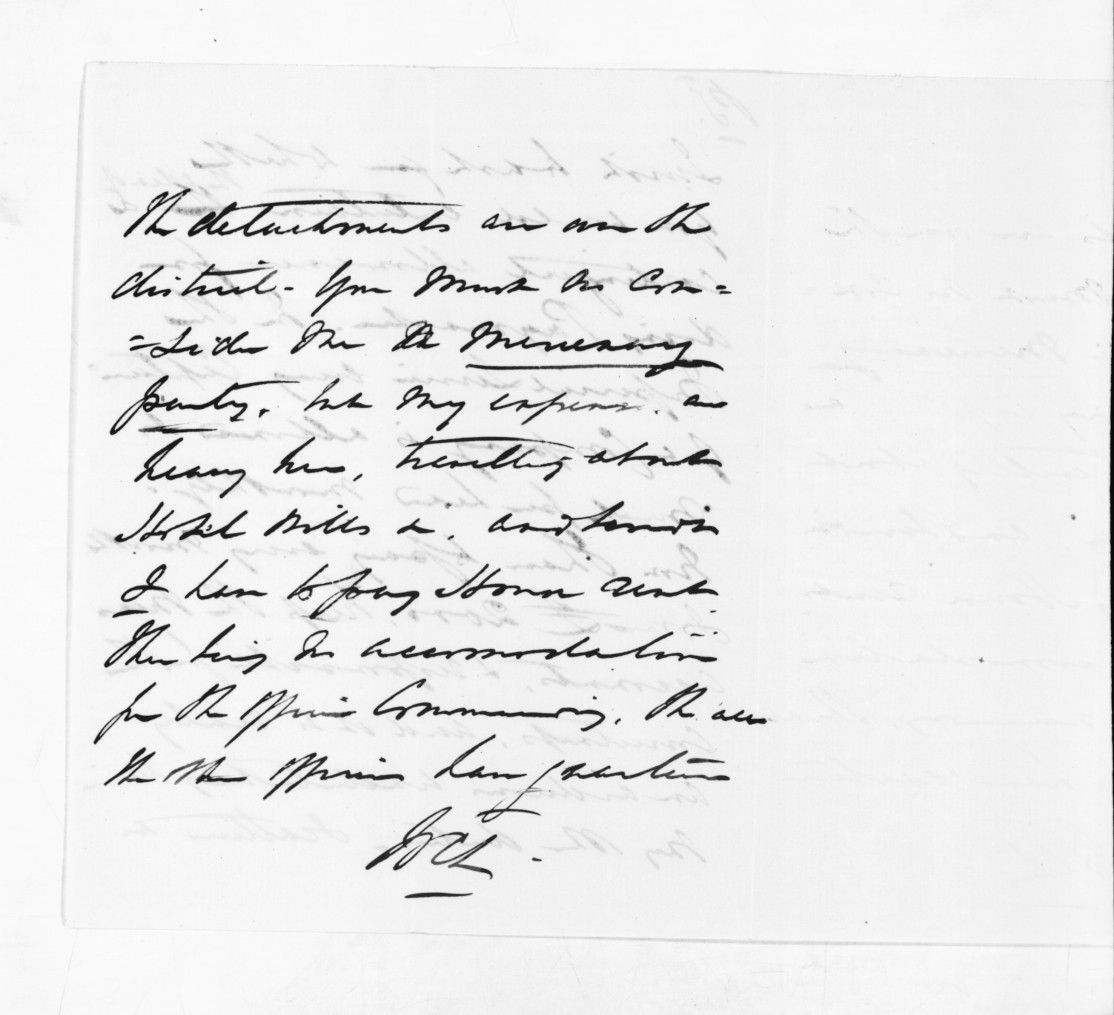 The detachments are over the
district - You must not con=
=sider me the mercenary
party, but my expenses are
heavy here, travelling about
Hotel bills &c, and besides
I have to pay House rent
there being no accomodation
for the Officer Commanding, tho all
the other officers have quarters